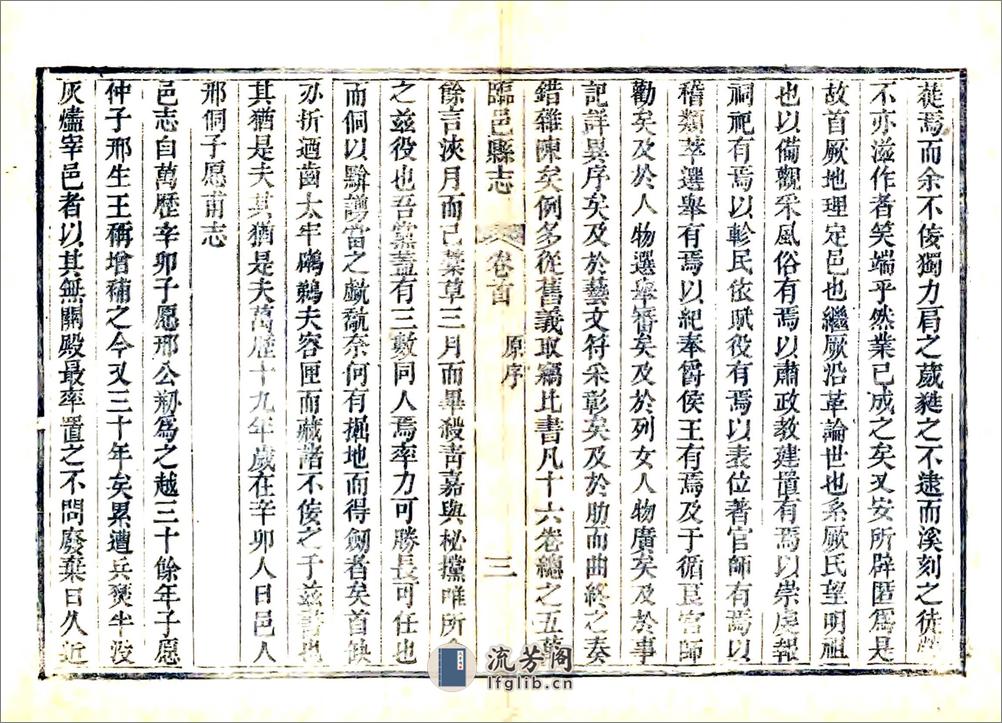 蓰焉而余不倿獨力肩之葳蕤之不逮而溪刻之徒
不亦滋作者笑端乎然業已成之矣又安所辟匿為是
故首厥地理定邑也繼厥沿革論世也系厥氏望明祖
也以備觀采風俗有焉以肅政教建置有焉以崇虔報
祠祀有焉以軫民依賦役有焉以表位著官師有焉以
稽類萃選舉有焉以紀奉爵侯王有焉及于循良宦歸
勸矣及於人物選舉審矣及於列女人物廣矣及於事
記詳異序矣及於藝文符采彰矣及於肋而曲終之奏
錯雜陳矣例多從舊義取竊比書凡十六卷總之五萬
臨邑縣志 卷首 原序 三
餘言浹月而已藁草三月而畢殺青嘉與秘攩唯所
之茲役也吾黨蓋有三數同人焉率力可勝長可任也
而侗以黭當之齮奈何有掘地而得劒者矣首
亦折遒齒太牢鵜夫容匣而藏諸不倿之于茲書也
其猶是夫其猶是夫萬歷十九年歲在辛卯人日邑人
邢侗子愿甫志
邑志自萬歷辛卯子愿邢公刱為之越三十餘年子愿
仲子邢生王稱增補之今又三十年矣累遭兵燹半沒
灰燼宰邑者以其無關殿最率置之不問廢棄日久近
流芳阁
lfglib.cn